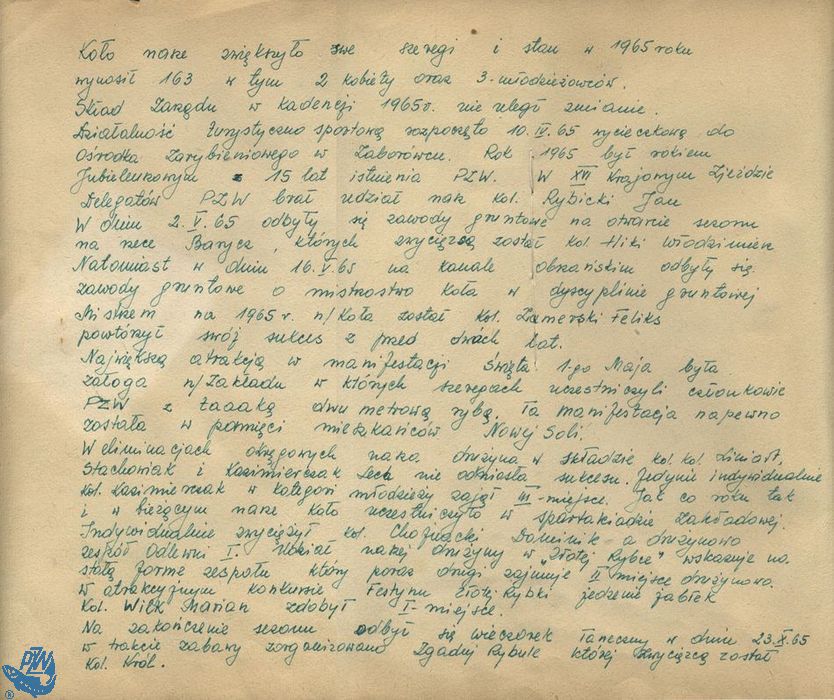 Koło nasze zwiększyło swe szeregi i stan w 1965 roku
wynosił 163 w tym 2 kobiety oraz 3-młodzieżowców.
Skład Zarządu w kadencji 1965r. nie uległ zmianie.
Działalność turystyczno sportową rozpoczęto 10.IV.65 wycieczkową do
Ośrodka Zarybieniowego w Zaborówcu. Rok 1965 był rokiem
Jubileuszowym - 15 lat istnienia PZW. W XVI Krajowym Zjeździe
Delegatów PZW brał udział nasz kol. Rybicki Jan
W dniu 2.V.65 odbyły się zawody gruntowe na otwarcie sezonu
na rzece Barycz, których zwycięzcą został kol. Hliki Włodzimierz
Natomiast w dniu 16.V.65 na kanale obrzańskim odbyły się
zawody gruntowe o mistrzostwo koła w dyscyplinie gruntowej
Mistrzem na 1965 r. n/Koła został kol. Zamerski Feliks
powtórzył swój sukces z przed dwóch lat.
Największą atrakcją w manifestacji Święta 1-go Maja była
załoga n/Zakładu w których szeregach uczestniczyli członkowie
PZW z taaaką dwu metrową rybą. Ta manifestacja napewno
została w pamięci mieszkańców Nowej Soli.
W eliminacjach okręgowych nasza drużyna w składzie kol. kol. Liniart,
Stachowiak i Kazimierczak Lech nie odniosła sukcesu. Jedynie indywidualnie
kol. Kazimierczak w kategori młodzieży zajął III-miejsce. Jak co roku tak
i w bieżącym nasze koło uczestniczyło w spartakiadzie Zakładowej.
Indywidualnie zwyciężył kol. Chojnacki Dominik a drużynowo
zespół Odlewni I. Udział naszej drużyny w „Złotej Rybce” wskazuje na
stałą formę zespołu który poraz drugi zajmuje II miejsce drużynowo.
W atrakcyjnym konkursie Festynu Złotej Rybki jedzenie jabłek
kol. Wilk Marian zdobył I-miejsce.
Na zakończenie sezonu odbył się wieczorek taneczny w dniu 23.X.65
w trakcie zabawy zorganizowano Zgadnij Rybule której zwycięzcą został
kol. Król.
PZW